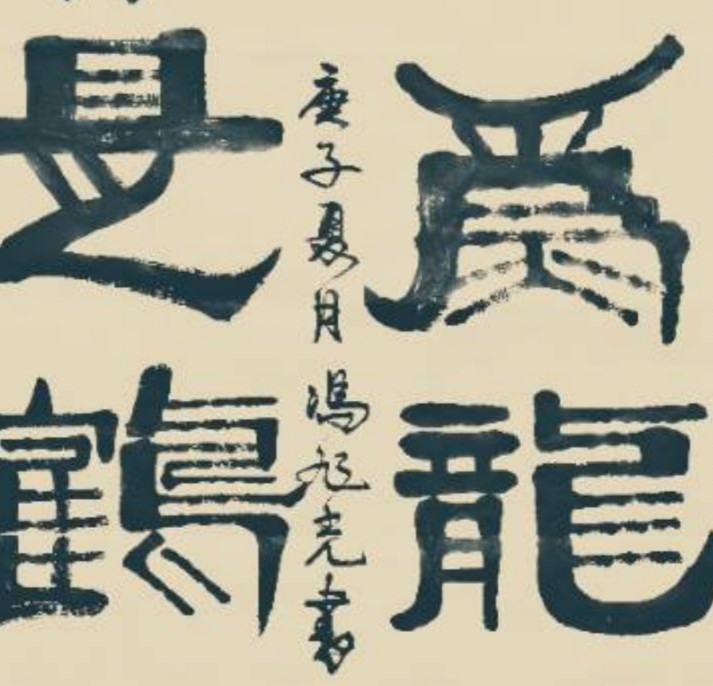 爲龍
庚子夏月 馮旭光書
是鶴